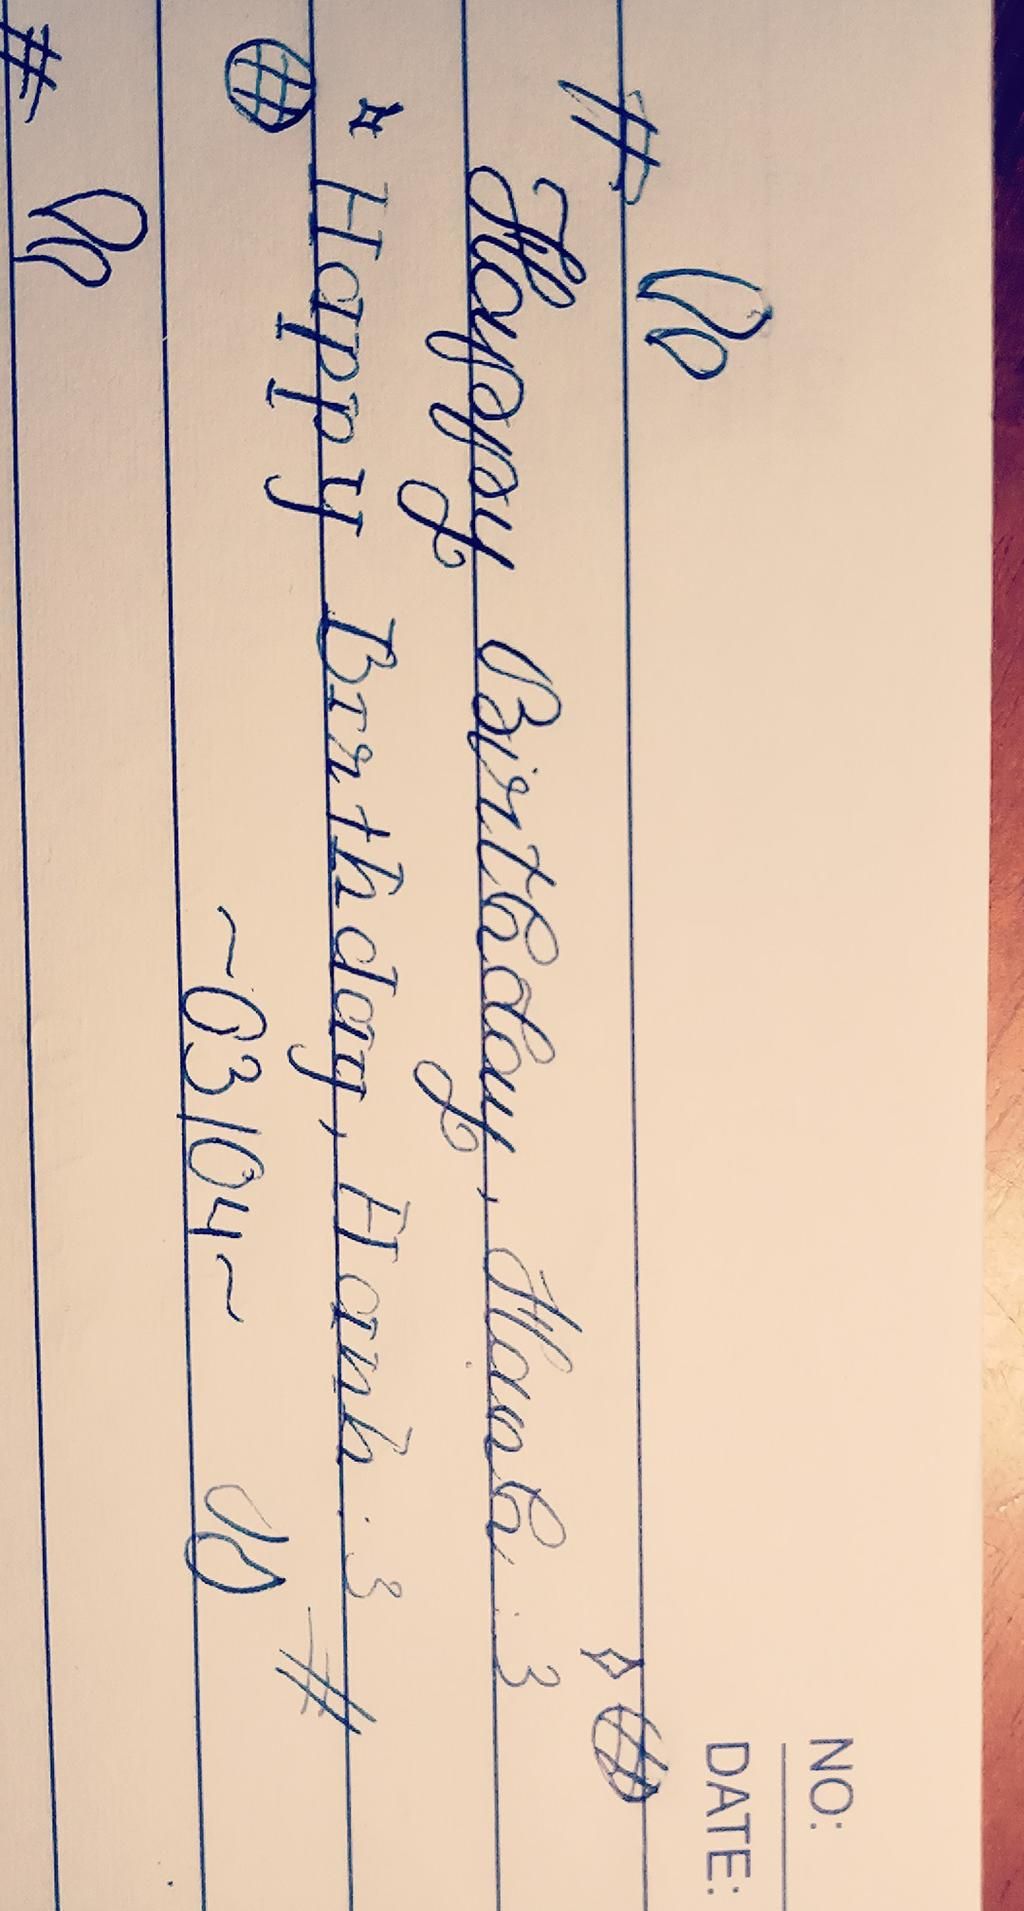 NO:
DATE:
Happy Birthday, Hanh :3
Happy Birthday, Hanh :3
~03/04~